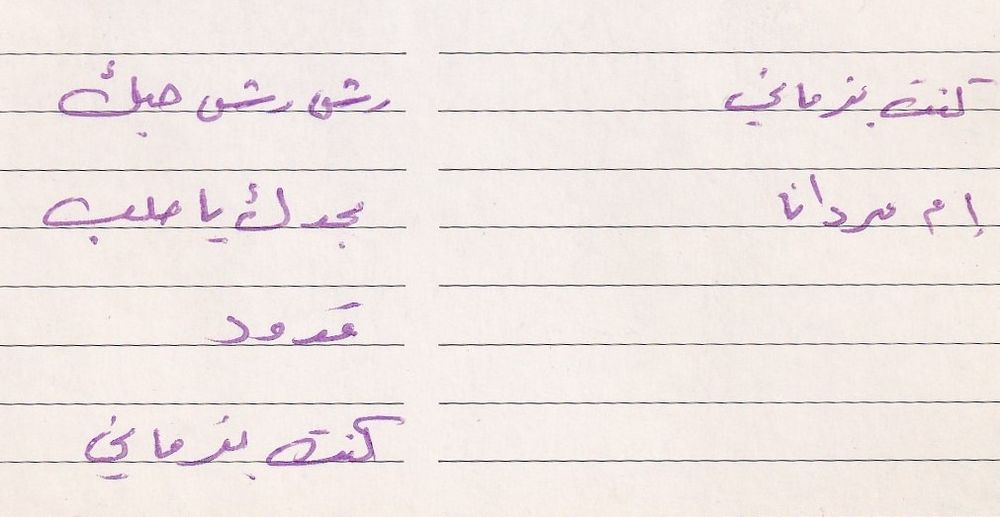 كنت بزماني
إم مردانا
رش رش حبك
مجدك يا حلب
قدود
كنت بزماني